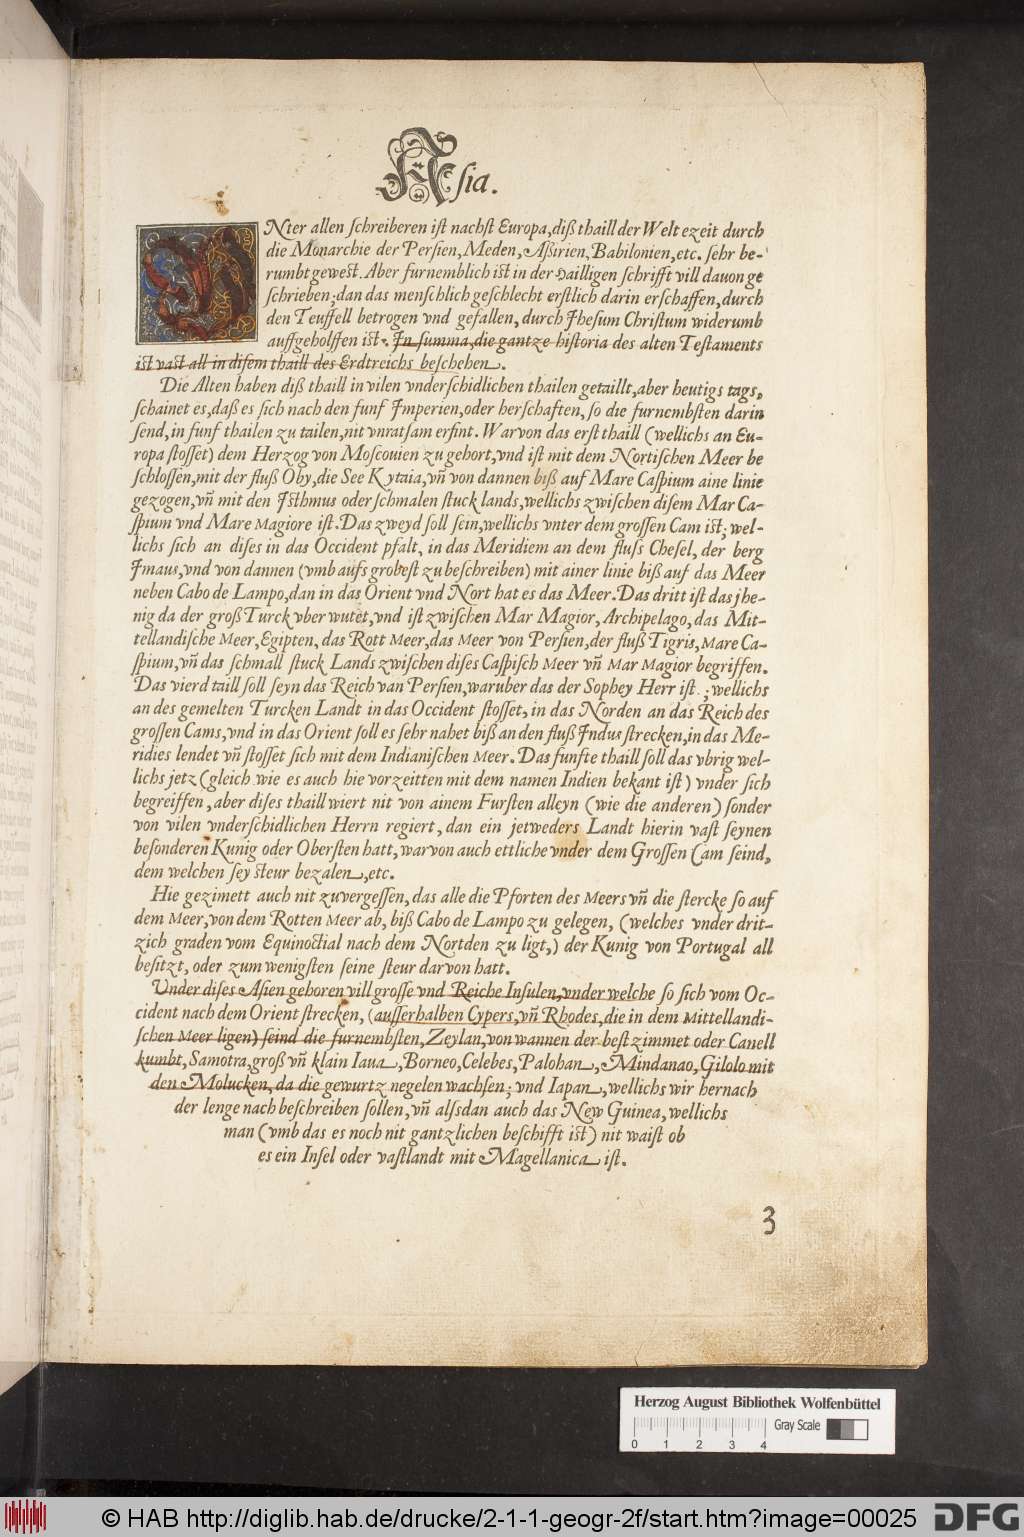 Asia.
VNter allen schreiberen ist nachst Europa, diß thaill der Welt ezeit durch
die Monarchie der Persien, Meden, Aßirien, Babilonien, etc. sehr be-
rumbt gewest. Aber furnemblich ist in der Hailligen schrifft vill dauon ge
schrieben; dan das menschlich geschlecht erstlich darin erschaffen, durch
den Teuffell betrogen vnd gefallen, durch Jhesum Christum widerumb
auffgeholffen ist. In summa, die gantze historia des alten Testaments
ist vast all in disem thaill des Erdtreichs beschehen.
Die Alten haben diß thaill in vilen vnderschidlichen thailen getaillt, aber heutigs tags,
schainet es, daß es sich nach den funf Imperien, oder herschaften, so die furnembsten darin
send, in funf thailen zu tailen, nit vnratsam erfint. Warvon das erst thaill (wellichs an Eu-
ropa stosset) dem Herzog von Moscouien zu gehort, vnd ist mit dem Nortischen Meer be
schlossen, mit der fluß Oby, die See Kytaia, vn̄ von dannen biß auf Mare Caspium aine linie
gezogen, vn̄ mit den Isthmus oder schmalen stuck lands, wellichs zwischen disem Mar Ca-
spium vnd Mare Magiore ist. Das zweyd soll sein, wellichs vnter dem grossen Cam ist; wel-
lichs sich an dises in das Occident pfalt, in das Meridiem an dem fluss Chesel, der berg
Imaus, vnd von dannen (vmb aufs grobest zu beschreiben) mit ainer linie biß auf das Meer
neben Cabo de Lampo, dan in das Orient vnd Nort hat es das Meer. Das dritt ist das jhe-
nig da der groß Turck vber wutet, vnd ist zwischen Mar Magior, Archipelago, das Mit-
tellandische Meer, Egipten, das Rott Meer, das Meer von Persien, der fluß Tigris, Mare Ca-
spium, vn̄ das schmall stuck Lands zwischen dises Caspisch Meer vn̄ Mar Magior begriffen.
Das vierd taill soll seyn das Reich van Persien, waruber das der Sophey Herr ist; wellichs
an des gemelten Turcken Landt in das Occident stosset, in das Norden an das Reich des
grossen Cams, vnd in das Orient soll es sehr nahet biß an den fluß Indus strecken, in das Me-
ridies lendet vn̄ stosset sich mit dem Indianischen Meer. Das funfte thaill soll das vbrig wel-
lichs jetz (gleich wie es auch hie vorzeitten mit dem namen Indien bekant ist) vnder sich
begreiffen, aber dises thaill wiert nit von ainem Fursten alleyn (wie die anderen) sonder
von vilen vnderschidlichen Herrn regiert, dan ein jetweders Landt hierin vast seynen
besonderen Kunig oder Obersten hatt, warvon auch ettliche vnder dem Grossen Cam seind,
dem welchen sey steur bezalen, etc.
Hie gezimett auch nit zuvergessen, das alle die Pforten des Meers vn̄ die stercke so auf
dem Meer, von dem Rotten Meer ab, biß Cabo de Lampo zu gelegen, (welches vnder drit-
zich graden vom Equinoctial nach dem Nortden zu ligt,) der Kunig von Portugal all
besitzt, oder zum wenigsten seine steur darvon hatt.
Vnder dises Asien gehoren vill grosse vnd Reiche Insulen, vnder welche so sich vom Oc-
cident nach dem Orient strecken, (ausserhalben Cypers, vn̄ Rhodes, die in dem Mittellandi-
schen Meer ligen) seind die furnembsten, Zeylan, von wannen der best zimmet oder Canell
kumbt, Samotra, groß vn̄ klain Iaua, Borneo, Celebes, Palohan, Mindanao, Gilolo mit
den Molucken, da die gewurtz negelen wachsen; vnd Iapan, wellichs wir hernach
der lenge nach beschreiben sollen, vn̄ alssdan auch das New Guinea, wellichs
man (vmb das es noch nit gantzlichen beschifft ist) nit waist ob
es ein Insel oder vastlandt mit Magellanica ist.
3
Herzog August Bibliothek Wolfenbüttel
Gray Scale
0 1 2 3 4
© HAB http://diglib.hab.de/drucke/2-1-1-geogr-2f/start.htm?image=00025
DFG